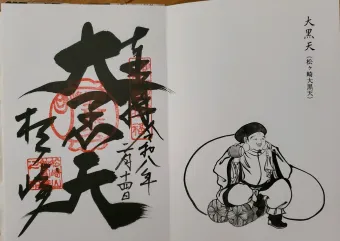 大黒天
(松ヶ崎大黒天)
令和八年
二月十四日
大黒天
松ヶ崎